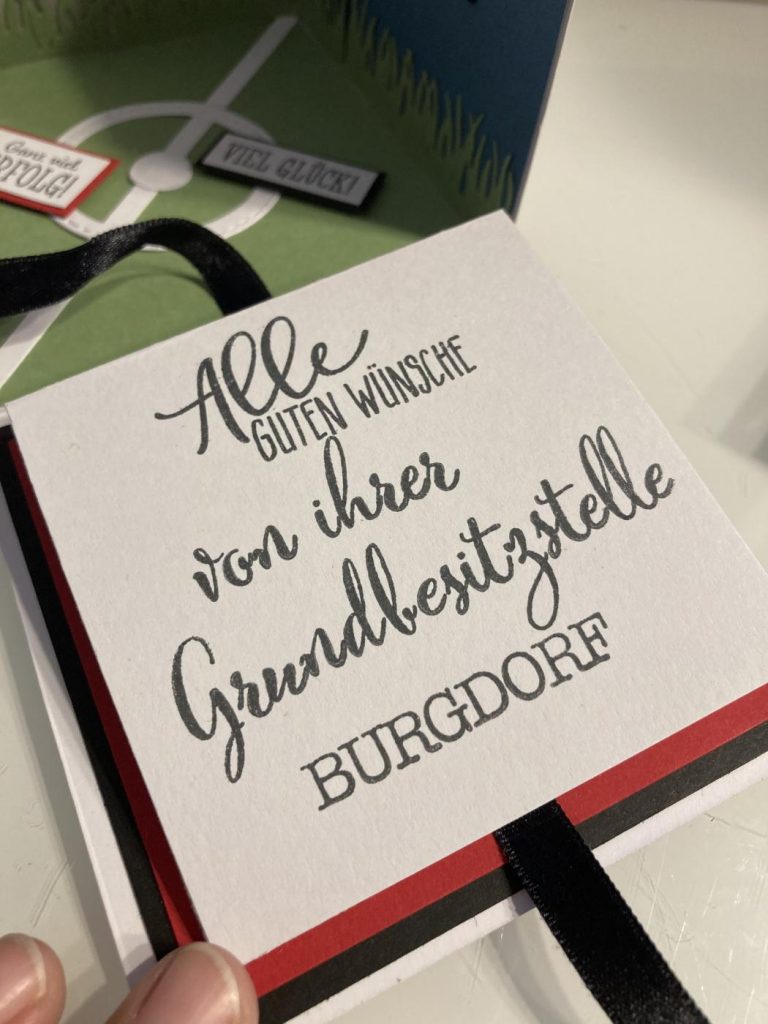 Ganz viel
ERFOLG!
VIEL GLÜCK!
Alle
GUTEN WÜNSCHE
von ihrer
Grundbesitzstelle
BURGDORF